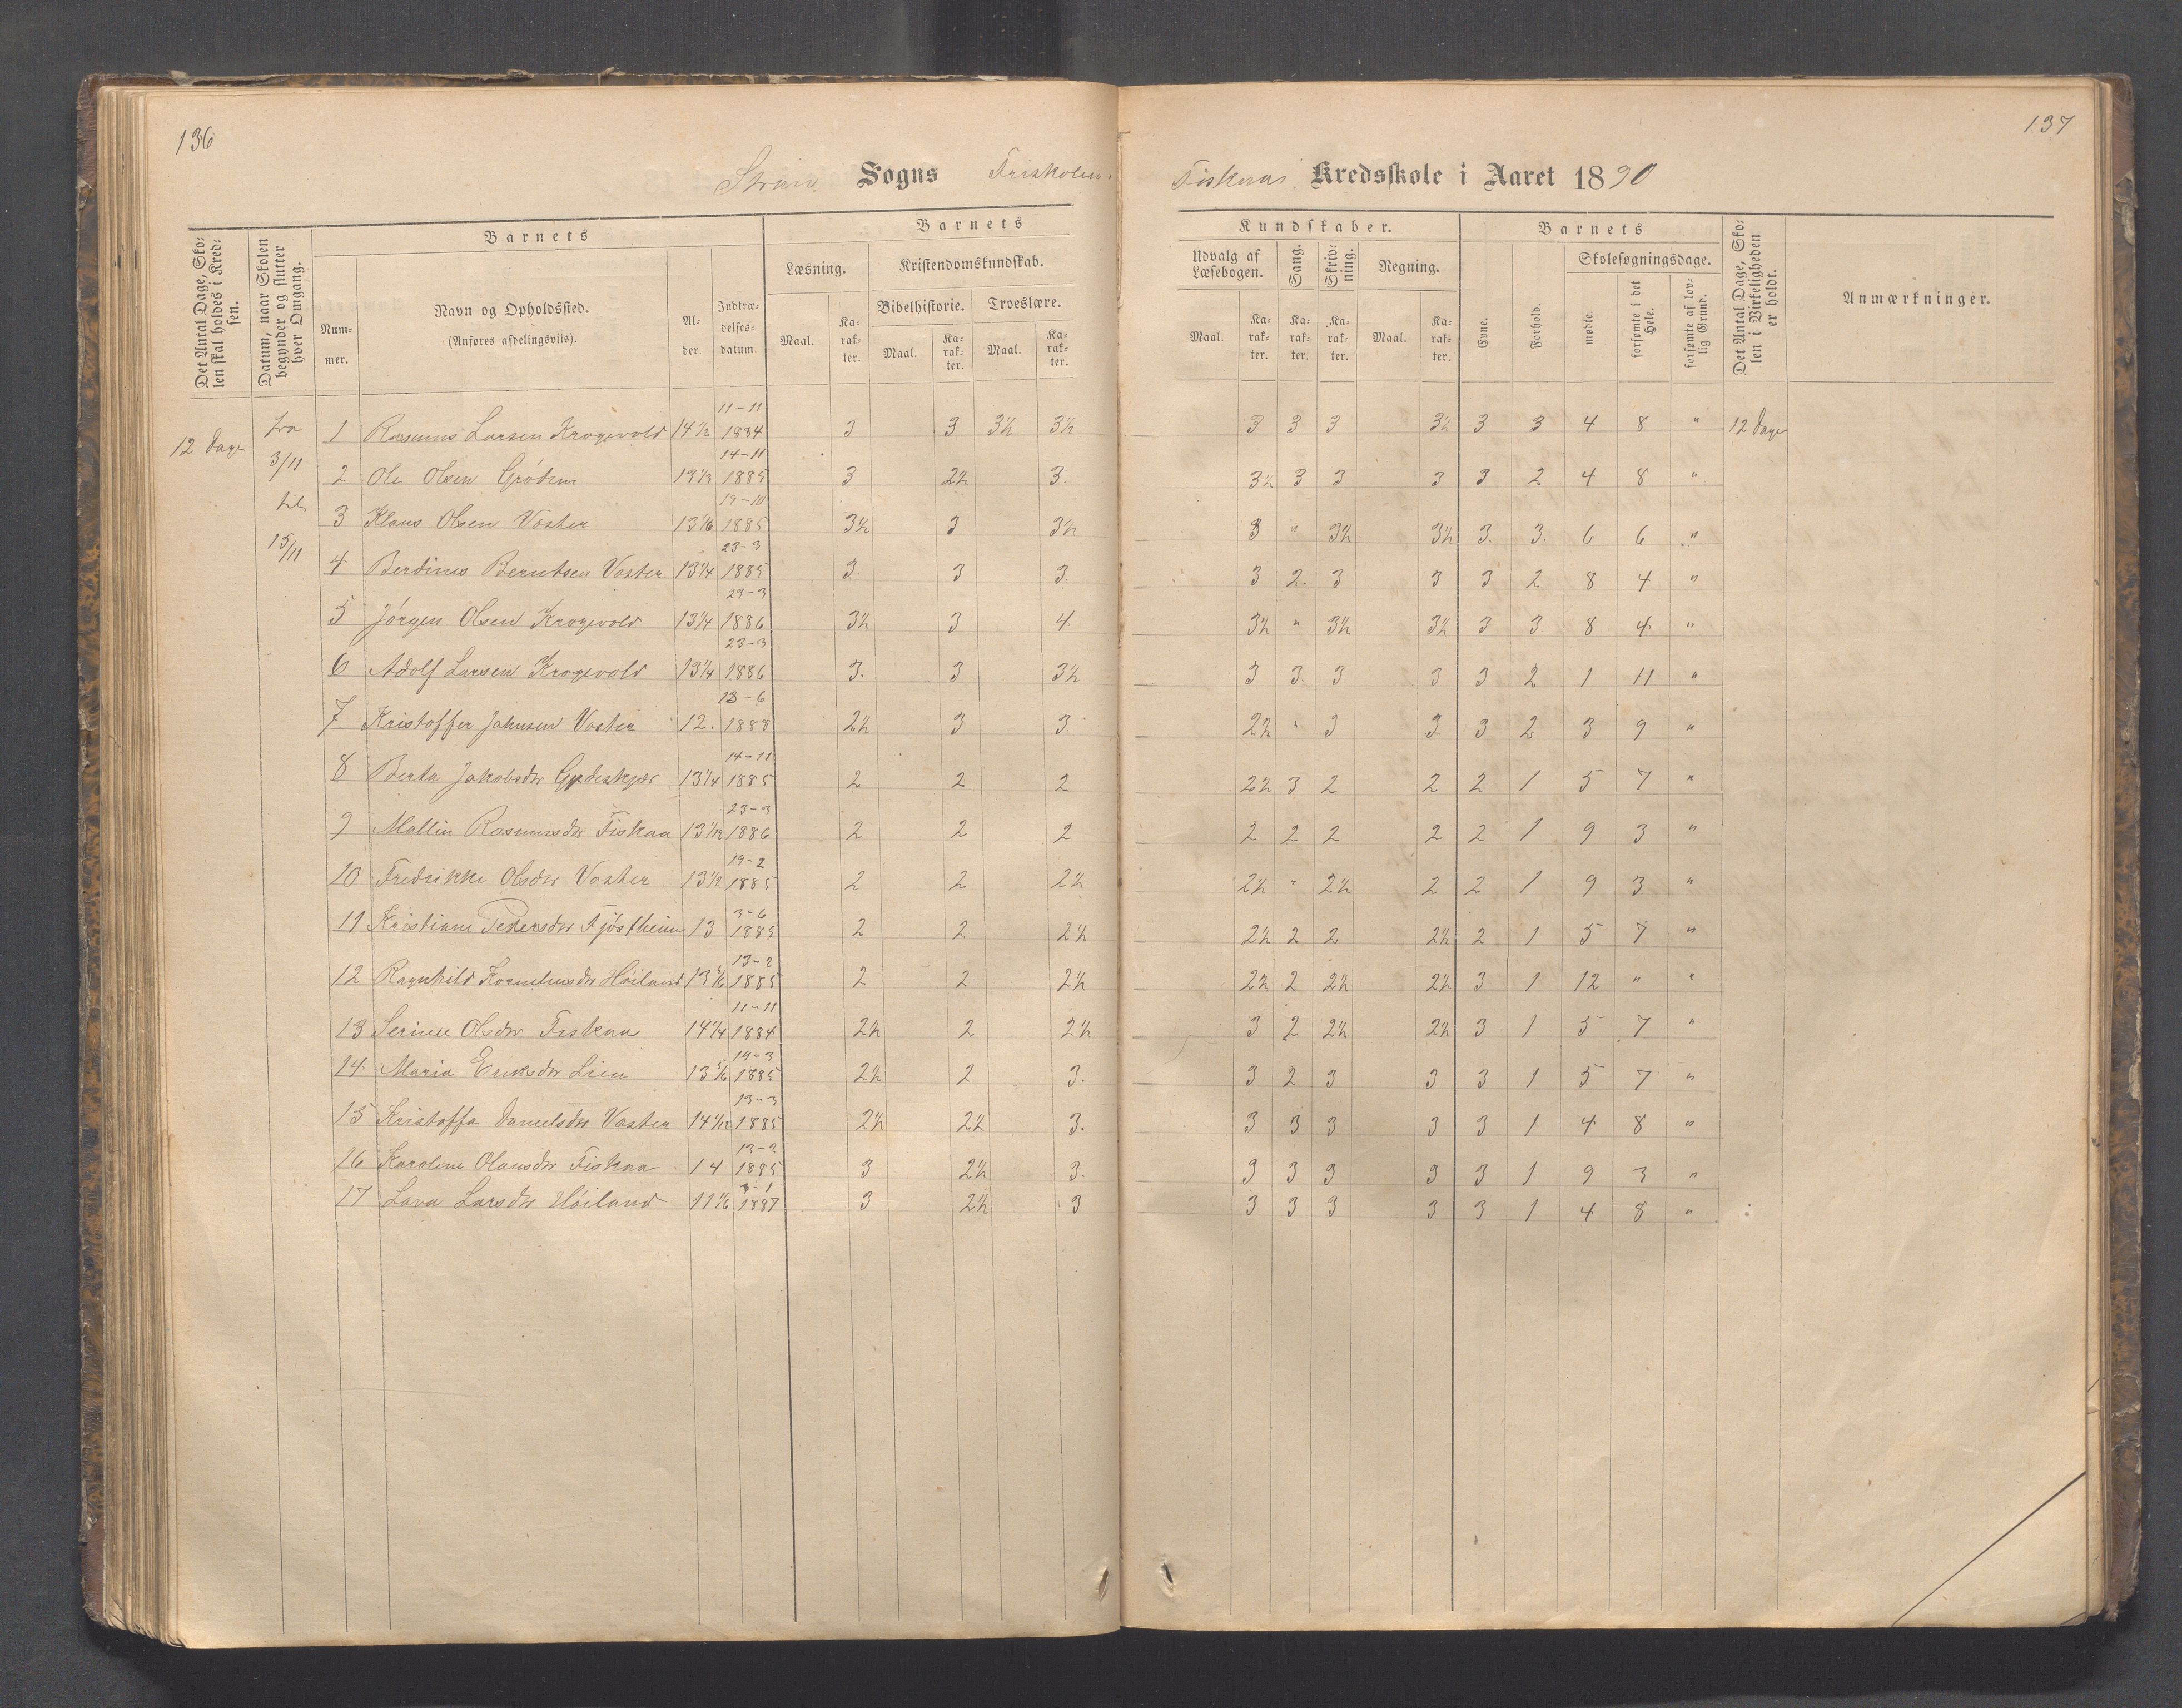 136
137
Sogns Friskolen
Fiskaas Kredsskole i Aaret 1890
Det Antal Dage, Skolen skal holdes i Kredsen.
Datum, naar Skolen begynder og slutter hver Omgang.
Barnets
Nummer.
Navn og Opholdssted.
(Anføres afdelingsviis).
Alder.
Indtrædelsesdatum.
Barnets
Læsning.
Maal.
Karakter.
Kristendomskundskab.
Bibelhistorie.
Maal.
Karakter.
Troeslære.
Maal.
Karakter.
Kundskaber.
Udvalg af Læsebogen.
Maal.
Karakter.
Sang.
Karakter.
Skrivning.
Karakter.
Regning.
Maal.
Karakter.
Barnets
Evne.
Forhold.
Skolesøgningsdage.
mødte.
forsømte i det Hele.
forsømte af lovlig Grund.
Det Antal Dage, Skolen i Virkeligheden er holdt.
Anmærkninger.
12 Dage
fra 3/11 til 15/11
1 Rasmus Larsen Krogevold 14 1/2 11-11 1884 3 3 3½ 3½ 3 3 3 3½ 3 3 4 8 " 12 Dage
2 Ole Olsen Grødem 14-11 1885 3 2½ 3. 3½ 3 3 3 3 2 4 8 "
3 Klaus Olsen Vaster 13 1/6 19-10 1885 3½ 3 3½ 3 " 3½ 3½ 3. 3. 6 6 "
4 Berdines Berntsen Vaster 13 1/4 23-3 1885 3 3 3. 3 2. 3 3 3 2 8 4 "
5 Jørgen Olsen Krogevold 13 1/4 23-3 1886 3½ 3 4 3½ " 3½ 3½ 3 3. 8 4 "
6 Adolf Larsen Krogevold 13 1/4 23-3 1886 3. 3 3½ 3 3. 3 3 3 2 1 11 "
7 Kristoffer Johnsen Vaster 12. 13-6 1888 2½ 3 3. 2½ " 3 3. 3 2 3 9 "
8 Berta Jakobsdr 13 1/4 14-11 1885 2 2 2 2½ 3 2 2 2 1 5 7 "
9 Mallin Rasmusdr Fiskaa 13 1/12 23-3 1886 2 2 2 2 2 2 2 2 1 9 3 "
10 Fredrikke Olsdr Vaster 13 1/2 19-2 1885 2 2 2½ 2½ " 2½ 2 2 1 9 3 "
11 Kristiane Pedersdr Fjøstheim 13 3-6 1885 2 2 2½ 2½ 2 2 2½ 2 1 5 7 "
12 Ragnhild Korneliusdr Høiland 13 5/6 13-2 1885 2 2 2½ 2½ 2 2½ 2½ 3 1 12 " "
13 Serine Olsdr Fiskaa 14 1/4 11-11 1884 2½ 2 2½ 3 2 2½ 2½ 3 1 5 7 "
14 Maria Eriksdr Lien 13 5/6 19-3 1885 2½ 2 3. 3 2 3 3 3 1 5 7 "
15 Kristoffa Danielsdr Vaster 14 1/12 13-3 1885 2½ 2½ 3. 3 3 3 3 3 1 4 8 "
16 Karoline Olausdr Fiskaa 14 13-2 1885 3 2½ 3. 3 3 3 3 3 1 9 3 "
17 Lava Larsdr Høiland 11 1/6 3-1 1887 3 2½ 3 3 3 3 3 3 1 4 8 "